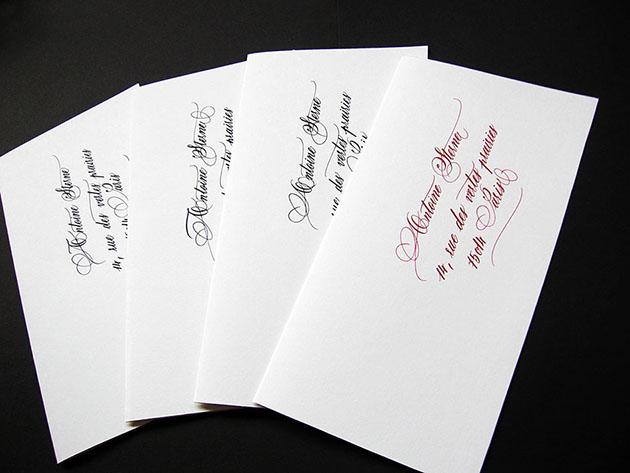 Antoine Sterne
14, rue des vertes prairies
Paris
Antoine Sterne
prairies
Antoine Sterne
rue des vertes prairies
Antoine Sterne
14, rue des vertes prairies
15014 Paris